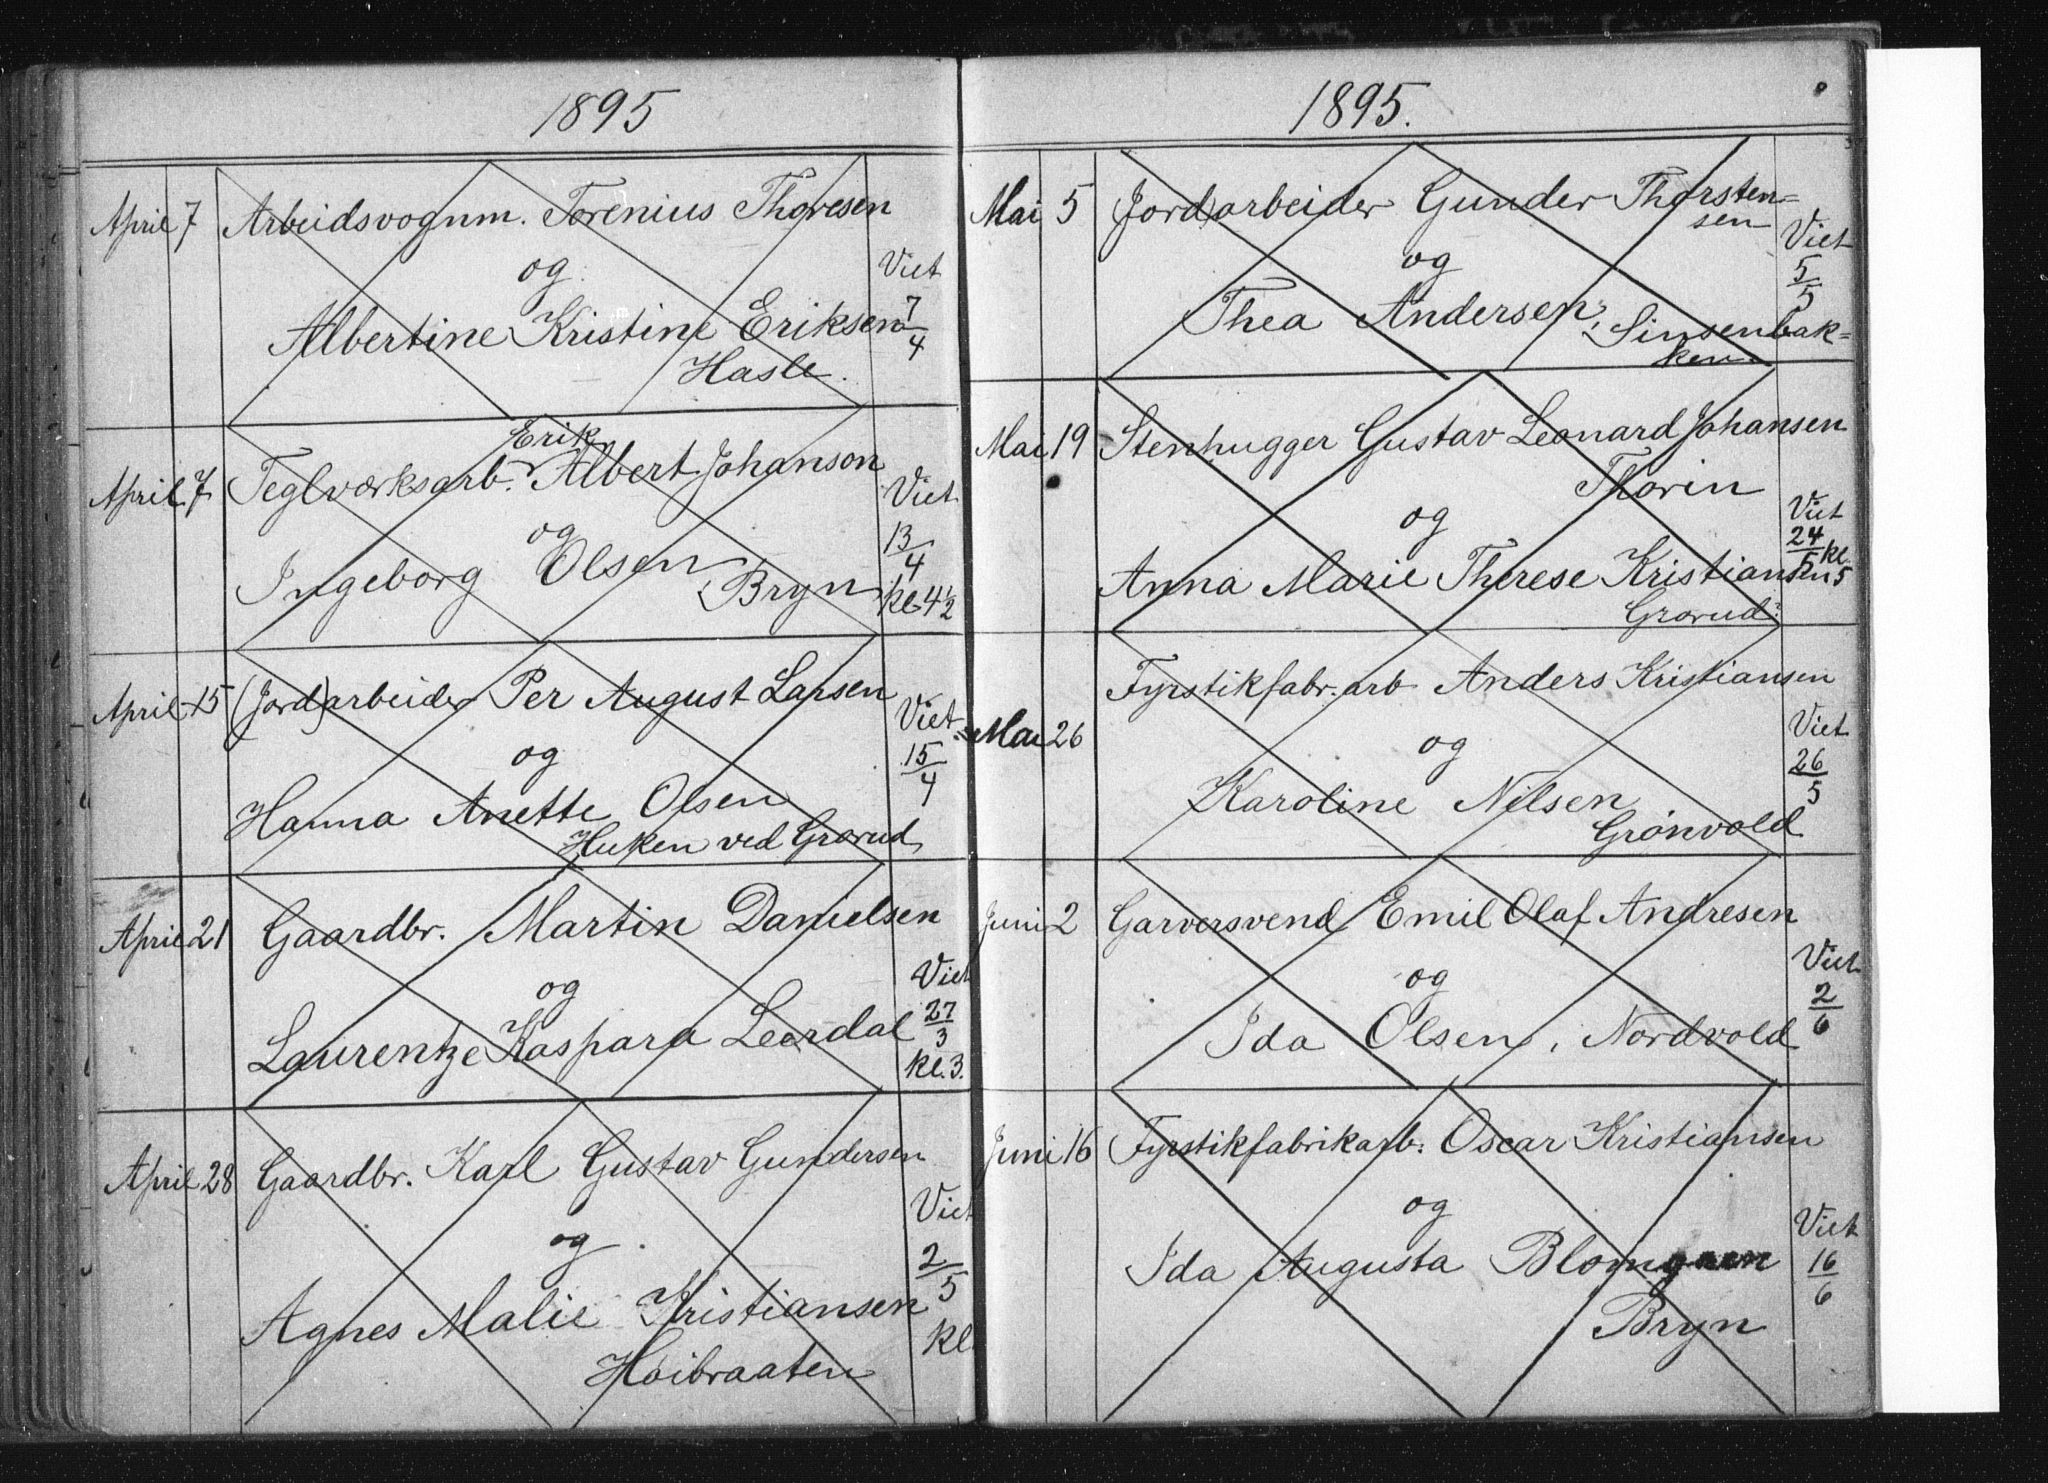 1895
April 7 Arbeidsvognm. Torenius Thoresen
og
Viet
Albertine Kristine Eriksen 7/4
Hasle.
Erik
April 7 Teglværksarb. Albert Johanson
Viet
og
13/4
Ingeborg Olsen, Bryn kl. 4 1/2
April 15 (Jord)arbeider Per August Larsen
Viet
og
15/4
Hanna Anette Olsen
Huken ved Grorud
April 21 Gaardbr. Martin Danielsen
Viet
og
27/3
Laurentze Kaspara Leerdal
kl. 3.
April 28 Gaardbr. Karl Gustav Gundersen
Viet
og
2/5
Agnes Malie Kristiansen
kl
Høibraaten
1895.
Mai 5 (Jord)arbeider Gunder Thorsten=
sen
Viet
og
5/5
Thea Andersen, Sinsenbak=
ken.
Mai 19 Stenhugger Gustav Leonard Johansen
Thorin
Viet
og
24/5 kl.
Anna Marie Therese Kristiansen 5
Grorud
Fyrstikfabr. arb Anders Kristiansen
Viet
Mai 26
og
26/5
Karoline Nilsen
Grønvold
Juni 2 Garversvend Emil Olaf Andresen
Viet
og
2/6
Ida Olsen, Nordvold
Juni 16 Fyrstikfabrikarb. Oscar Kristiansen
og
Viet
Ida Augusta 16/6
Bryn